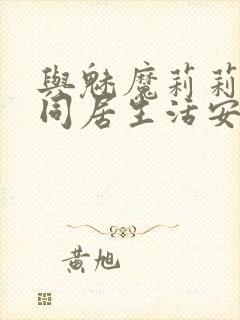 與魅魔莉莉
同居生活安
黃旭